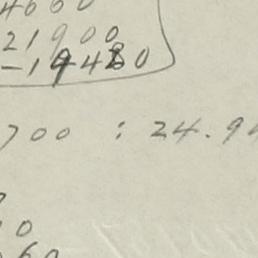 4660
21900
-19480
700 : 24.94
0
60